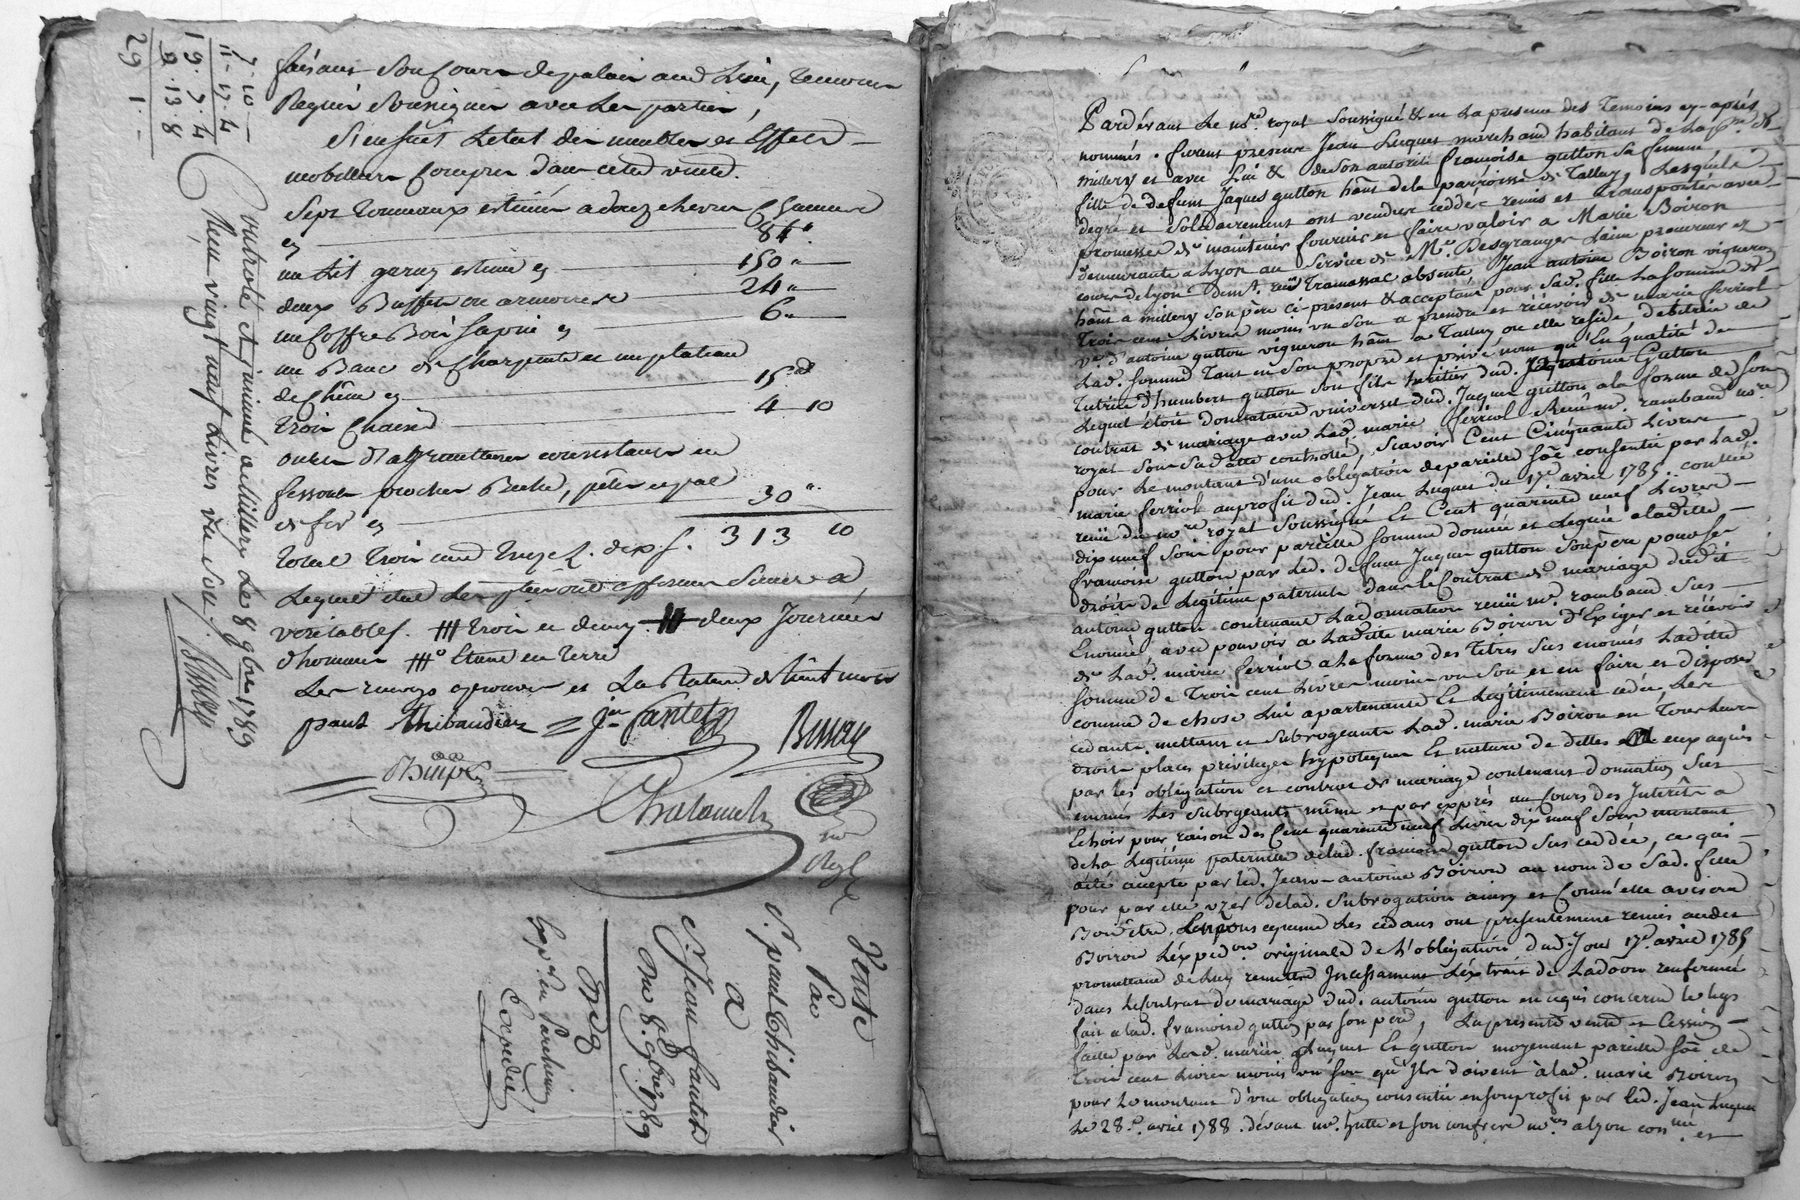 faisant Son Cours de palais audit Lieu, temoins
Requis Soussignés avec Les parties,
S'ensuit L'etat des meubles et Effets
mobiliers Compris dans cette vente.
Sept Tonneaux estimés a douze livres Chaqu'un
cy 84 "
un Lit garny estimé cy 150 "
deux Buffets ou armoires 24 "
un Coffre Bois Sapin cy 6 "
un Banc de Charpente et un plateau
de Chêne cy 15
trois Chaises 4 10
outils d'agriculture consistant en
pioches Beche, pelle
de fer cy 30 "
Total trois cent treize L. dix s. 313 10
Lequel etat Les parties ont affirmé Sincere et
veritable. trois et demy deux Journées
d'hommes Etant en terre
Les renvoys approuvés et La Rature de huit mots
paul Thibaudier = Jean Fantet Bussay
7 . 10 —
11 - 17 . 4
19 . 7 . 4
9 . 13 . 8
29 1 . -
Controlé et insinué a Millery Le 8 9bre 1789
Reçu vingt neuf Livres un Sou.
Bussay
Vente
Par
Sr. paul Thibaudier
a
Sr. Jean Fantet
Du 8. 9bre 1789
Expée. en Parchemin
Expediée
Pardevant Le nore. royal Soussigné & en La presence des Temoins cy-après
nommés. furent presens Jean Luquet marchand habitant de La psse. de
millery et avec Lui & de Son autorité françoise gutton Sa femme
fille de defunt Jaques gutton hant. de la parroisse de Talluy, Lesquels
degré et Solidairement ont vendus ceddés remis et transportés avec
promesse de maintenir fournir et faire valoir a Marie Boiron
demeurante a Lyon au Service de Me. Desgranges Laine procureur es
cours de Lyon rue Tramassac absente, Jean antoine Boiron vigneron
hant. a millery Son père ci-present & acceptant pour Sad. fille La Somme de
Trois cent Livres moins un Sou a prendre et récevoir de marie ferriol
ve. d'antoine gutton vigneron hant. a Talluy ou elle reside debitrice de
Lad. Somme Tant en Son propre et privé nom qu'En qualité de
Tutrice d'humbert gutton Son fils heritier dud. antoine Gutton
Lequel étoit donnataire universel dud. Jaques gutton a la forme de Son
contrat de mariage avec Lad. marie ferriol Reçu me. rambaud nre.
royal Sous Sa datte controllé, Scavoir Cent Cinquante Livres
pour Le montant d'une obligation de pareille Sôe consentie par Lad.
marie ferriol au profit dud. Jean Luquet du 17e. avril 1785. contlée
reçue du nore. royal Soussigné Et Cent quarante neuf Livres
dix neuf Sous pour pareille Somme donnée et Leguée a ladite
françoise gutton par Led. defunt Jaques gutton Son père pour Ses
droits de Legitime paternels dans le Contrat de mariage dudit
antoine gutton contenant La donnation reçue me. rambaud Sus
Enoncé avec pouvoir a Ladite marie Boiron d'Exiger et récevoir
de Lad. marie ferriol a la forme des Titres Sus enoncés Ladite
Somme de Trois cent Livres moins un Sou et en faire et disposer
comme de chose Lui apartenante Et Legitimement cedée, Les
cedants mettant et Subrogeants Lad. marie Boiron en Tous leurs
droits places privileges hypoteques Et nature de dettes a eux aquis
par les obligation et contrat de mariage contenant donnation Sus
enoncés Les Subrogeants même et par exprès au Cours des Interêts a
Echoir pour raison des Cent quarante neuf Livres dix neuf Sous montant
de La Legitime paternelle de lad. françoise gutton Sus ceddée, ce qui
a été accepté par led. Jean-antoine Boiron au nom de Sad. fille
pour par elle uzer de lad. Subrogation ainsy et Comm'elle avisera
Bon être. comme Les cedans ont présentement remis audit
Boiron L'expedon. originale de L'obligation dud. Jour 17e. avril 1785
promettant de Luy remettre Incessament L'extrait de Ladôon renfermée
dans le contrat de mariage dud. antoine gutton en ce qui concerne le legs
fait a lad. françoise gutton par Son père, La presente vente et Cession
faitte par Led. mariés Luquet Et gutton moyenant pareille Sôe de
Trois cent Livres moins un Sou qu'Ils doivent à lad. marie Boiron
pour le montant d'une obligation consentie en Son profit par led. Jean Luquet
Le 28e. avril 1788. dévant me. et Son confrere nores a Lyon et